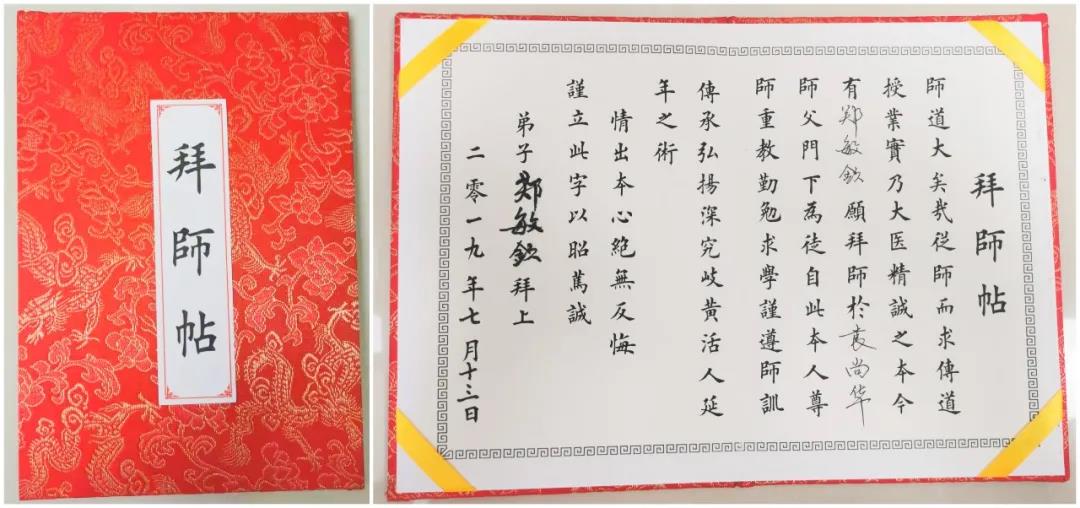 拜師帖
拜師帖
師道大矣哉從師而求傳道
授業實乃大医精誠之本今
有郑敏钦願拜師於袁尚华
師父門下為徒自此本人尊
師重教勤勉求學謹遵師訓
傳承弘揚深究岐黄活人延
年之術
情出本心絕無反悔
謹立此字以昭篤誠
弟子郑敏钦拜上
二零一九年七月十三日